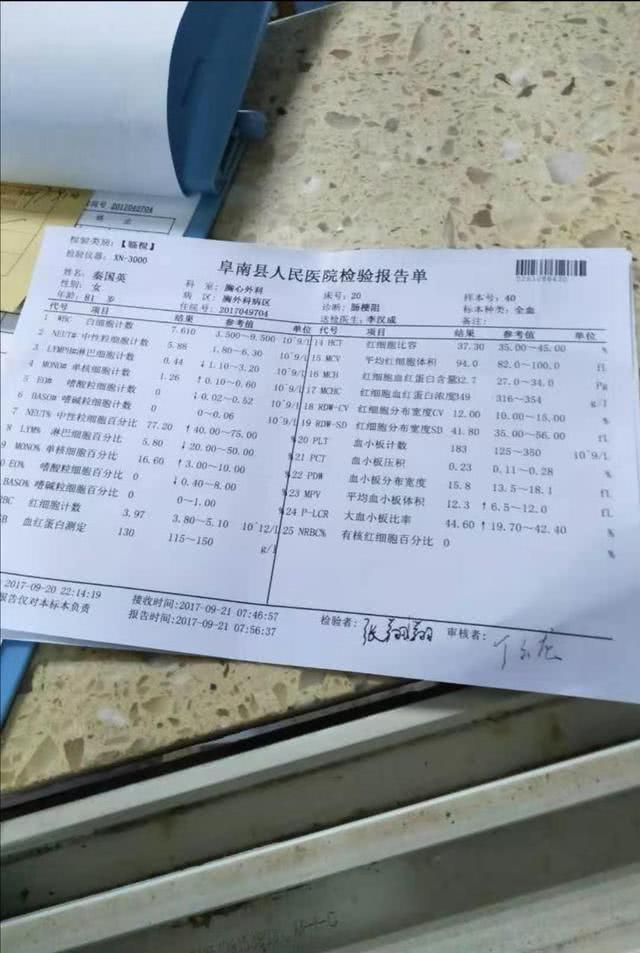 2017042704
检验类别:【临检】
检验仪器: XN-3000
阜南县人民医院检验报告单
姓名: 秦国英 科 室: 胸心外科 床号: 20 样本号: 40
性别: 女 病 区: 胸外科病区 诊断: 肠梗阻 标本种类: 全血
年龄: 81 岁 住院号: 2017049704 送检医生: 李汉威 备注:
代号 项目 结果 参考值 单位 代号 项目 结果 参考值 单位
1 WBC 白细胞计数 7.610 3.500~9.500 10^9/L 14 HCT 红细胞比容 37.30 35.00~45.00 %
2 NEUT# 中性粒细胞计数 5.88 1.80~6.30 10^9/L 15 MCV 平均红细胞体积 94.0 82.0~100.0 fL
3 LYMPH# 淋巴细胞计数 0.44 ↓1.10~3.20 10^9/L 16 MCH 红细胞血红蛋白含量 32.7 27.0~34.0 Pg
4 MONO# 单核细胞计数 1.26 ↑0.10~0.60 10^9/L 17 MCHC 红细胞血红蛋白浓度 349 316~354 g/l
5 EO# 嗜酸粒细胞计数 0 ↓0.02~0.52 10^9/L 18 RDW-CV 红细胞分布宽度CV 12.00 10.00~15.00 %
6 BASO# 嗜碱粒细胞计数 0 0~0.06 10^9/L 19 RDW-SD 红细胞分布宽度SD 41.80 35.00~56.00 fL
7 NEUT% 中性粒细胞百分比 77.20 ↑40.00~75.00 % 20 PLT 血小板计数 183 125~350 10^9/L
8 LYM% 淋巴细胞百分比 5.80 ↓20.00~50.00 % 21 PCT 血小板压积 0.23 0.11~0.28 %
MONO% 单核细胞百分比 16.60 ↑3.00~10.00 % 22 PDW 血小板分布宽度 15.8 13.5~18.1 fL
EO% 嗜酸粒细胞百分比 0 ↓0.40~8.00 % 23 MPV 平均血小板体积 12.3 ↑6.5~12.0 fL
BASO% 嗜碱粒细胞百分比 0 0~1.00 % 24 P-LCR 大血小板比率 44.60 ↑19.70~42.40 %
RBC 红细胞计数 3.97 3.80~5.10 10^12/L 25 NRBC% 有核红细胞百分比 0 %
GB 血红蛋白测定 130 115~150 g/L
2017-09-20 22:14:19 接收时间:2017-09-21 07:46:57 检验者: 张翔翔 审核者:
报告仅对本标本负责 报告时间:2017-09-21 07:56:37